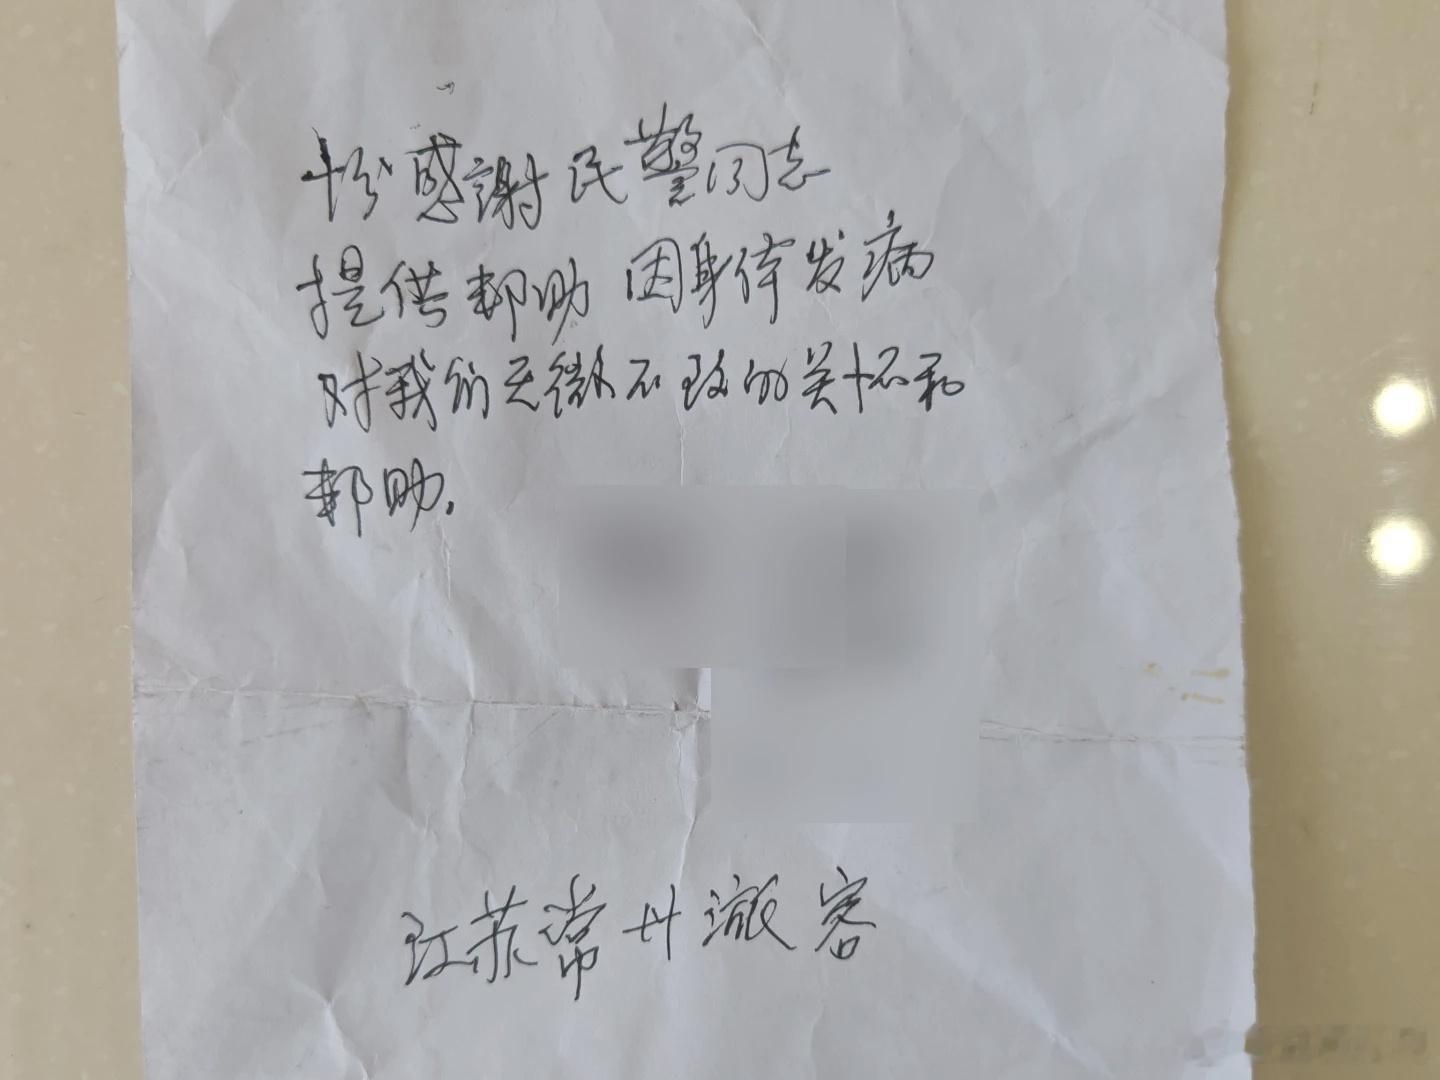 十分感謝民警同志
提供帮助 因身体发病
对我们无微不致的关怀和
帮助.
江苏常州旅客